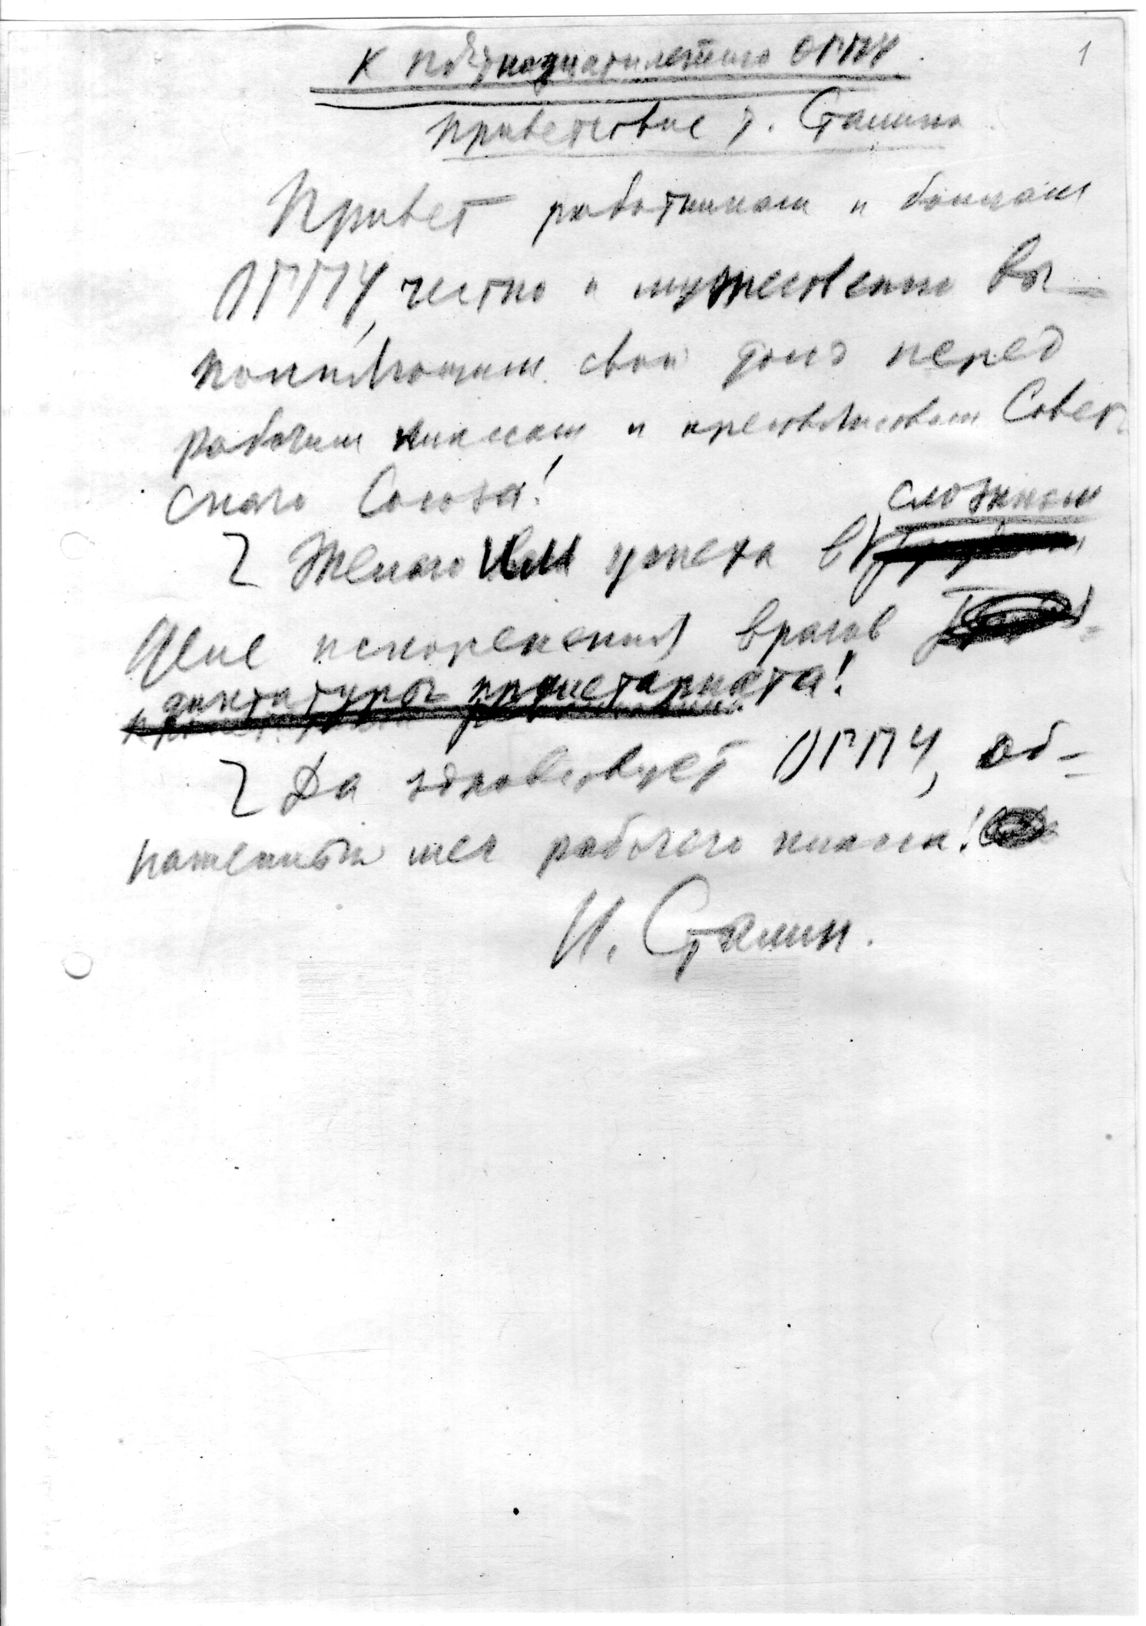 К пятнадцатилетию ОГПУ.
1
Приветствие т. Сталина
Привет работникам и бойцам
ОГПУ, честно и мужественно вы-
полняющим свой долг перед
рабочим классом и крестьянством Совет-
ского Союза!
сложном
Желаю Вам успеха в
деле искоренения врагов
диктатуры пролетариата!
Да здравствует ОГПУ, об-
наженный меч рабочего класса!
И. Сталин.